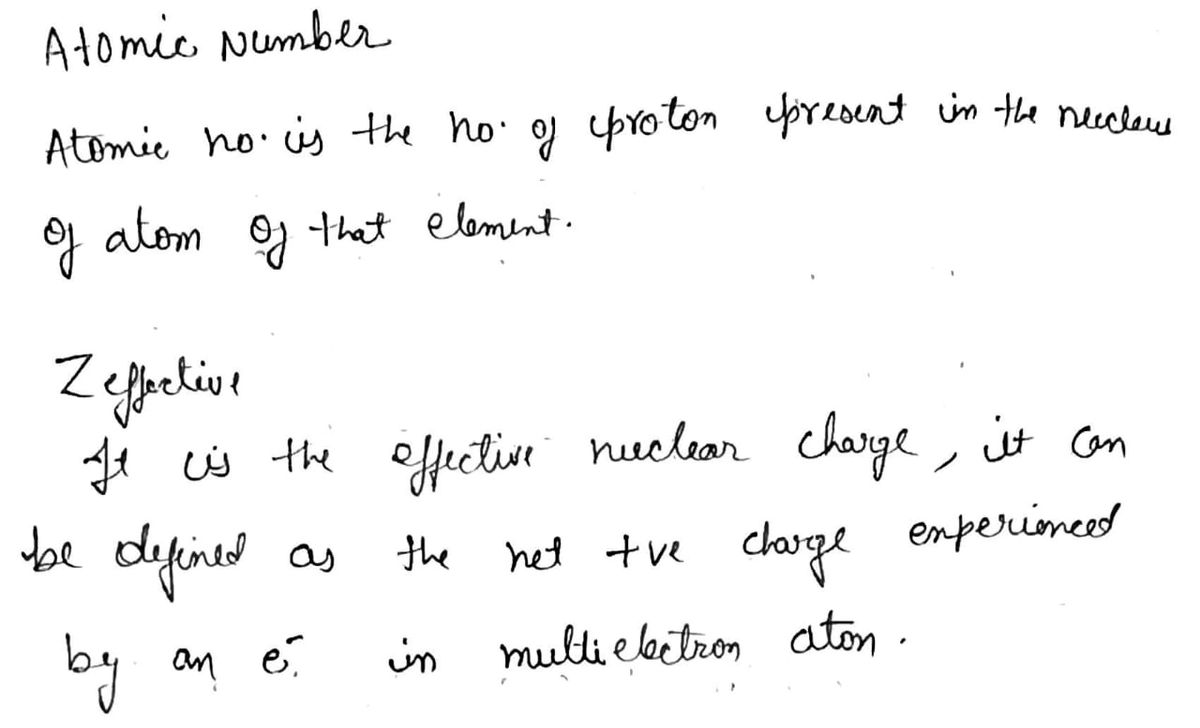 Atomic Number
Atomic no. is the no. of proton present in the nucleus
of atom of that element.
Z effective
It is the effective nuclear charge, it can
be defined as the net +ve charge experienced
by an e⁻ in multielectron atom.